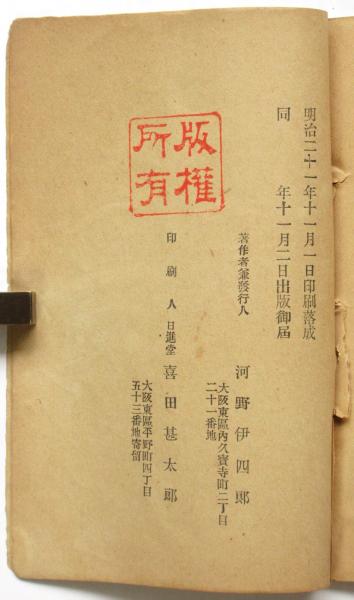 明治二十一年十一月一日印刷落成
同 年十一月二日出版御屆
著作者兼發行人 河野伊四郎
大阪東區內久寶寺町二丁目
二十一番地
印刷人 日進堂 喜田甚太郎
大阪東區平野町四丁目
五十三番地寄留
版權
所有